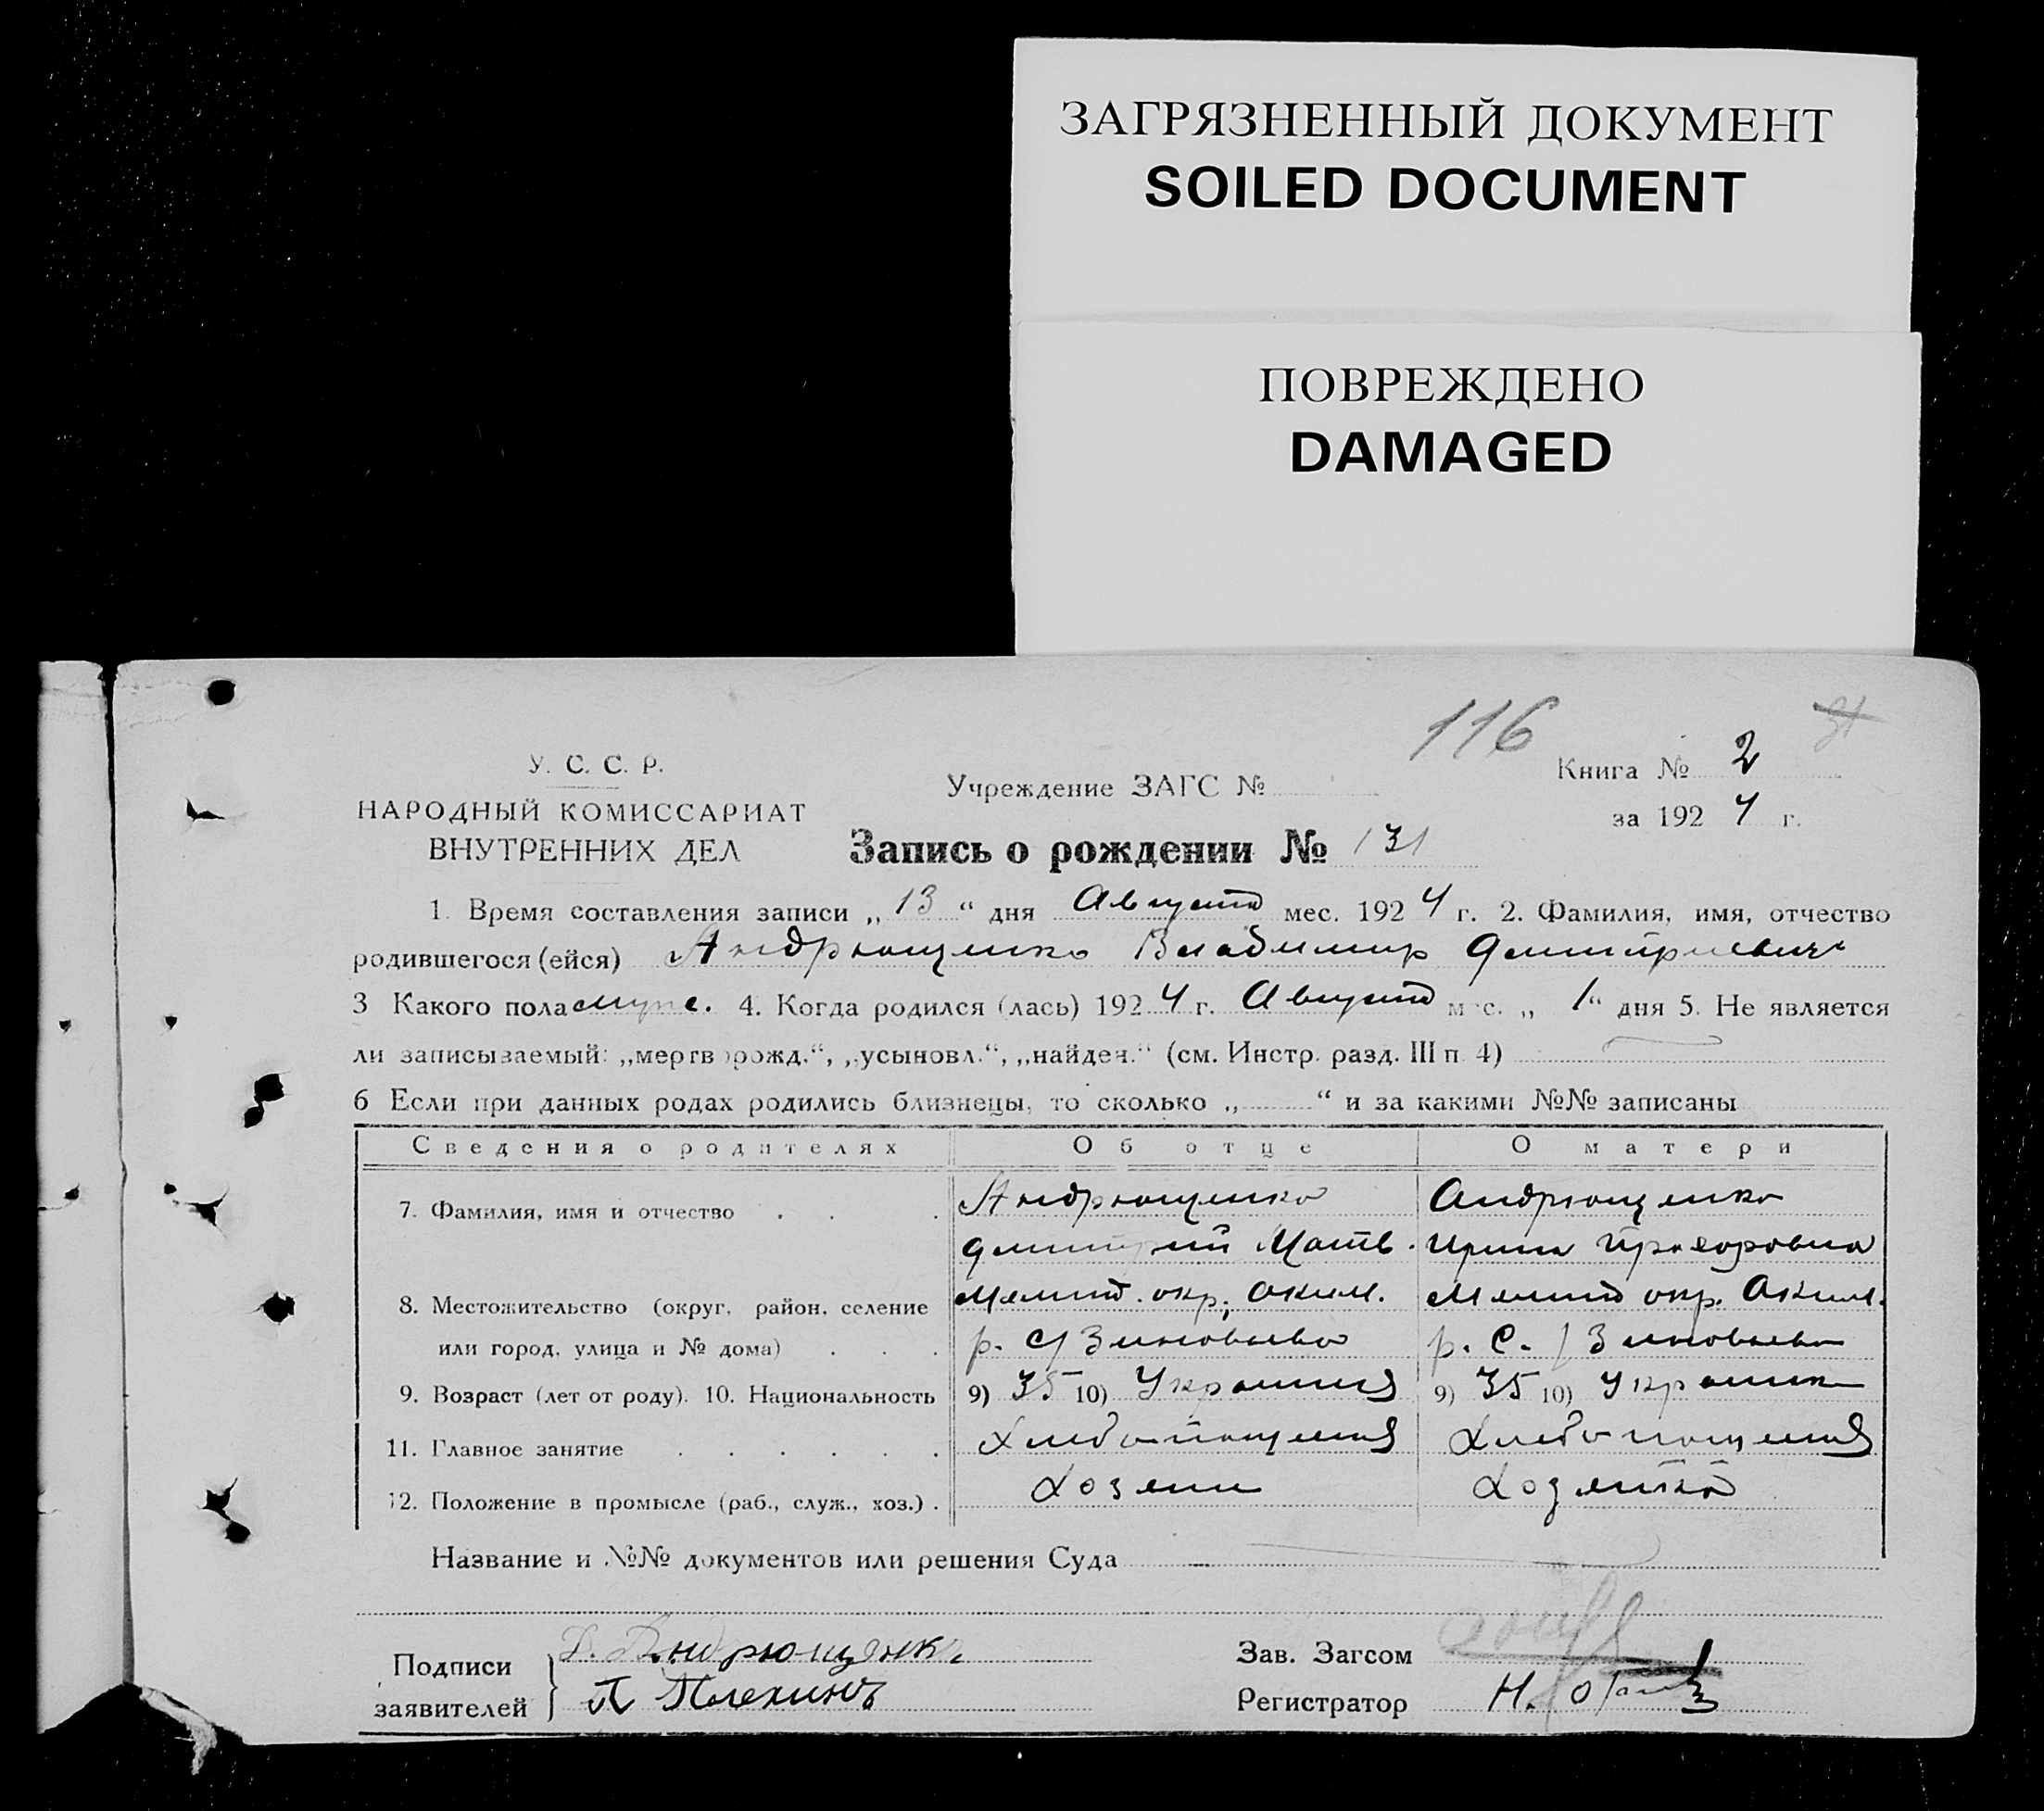 ЗАГРЯЗНЕННЫЙ ДОКУМЕНТ
SOILED DOCUMENT
ПОВРЕЖДЕНО
DAMAGED
116
У. С. С. Р.
НАРОДНЫЙ КОМИССАРИАТ
ВНУТРЕННИХ ДЕЛ
Учреждение ЗАГС №
Книга № 2
за 1924 г.
Запись о рождении № 131
1. Время составления записи „13“ дня Августа мес. 1924 г. 2. Фамилия, имя, отчество
родившегося (ейся) Андрющенко Владимир Дмитриевич
3 Какого пола муж. 4. Когда родился (лась) 1924 г. Августа мес. „1“ дня 5. Не является
ли записываемый: „мертворожд.“, „усыновл.“, „найден.“ (см. Инстр. разд. III п 4)
6 Если при данных родах родились близнецы, то сколько „ “ и за какими №№ записаны
Сведения о родителях Об отце О матери
7. Фамилия, имя и отчество Андрющенко Андрющенко
Дмитрий Матв. Ирина Прохоровна
8. Местожительство (округ, район, селение Мелит. окр. Аким. Мелит окр. Аким.
или город, улица и № дома) р. с/Зиновьево р. С. /Зиновьево
9. Возраст (лет от роду). 10. Национальность 9) 35 10) Украинец 9) 35 10) Украинк
11. Главное занятие Хлебопащения Хлебопащения
12. Положение в промысле (раб., служ., хоз.) Хозеин Хозяйка
Название и №№ документов или решения Суда
Подписи
заявителей
Д. Андрющенк
П Плехинъ
Зав. Загсом
Регистратор Н.